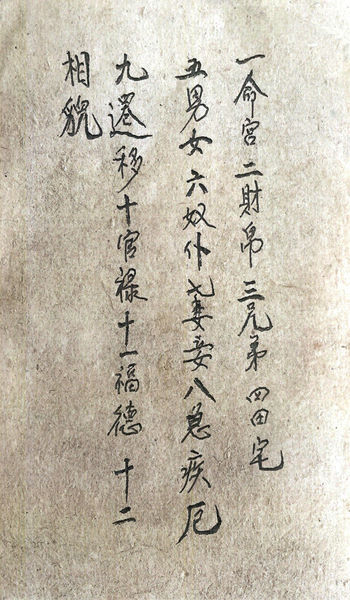 一命宫二財帛三兄弟四田宅
五男女六奴仆七妻妾八急疾厄
九迁移十官禄十一福德十二
相貌